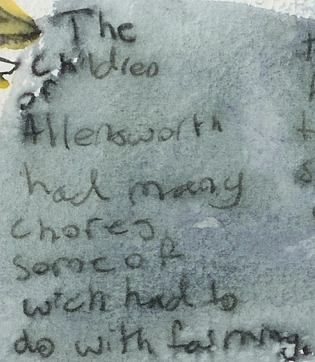 The
Children
of
Allensworth
had many
chores
some of
wich had to
do with farming.